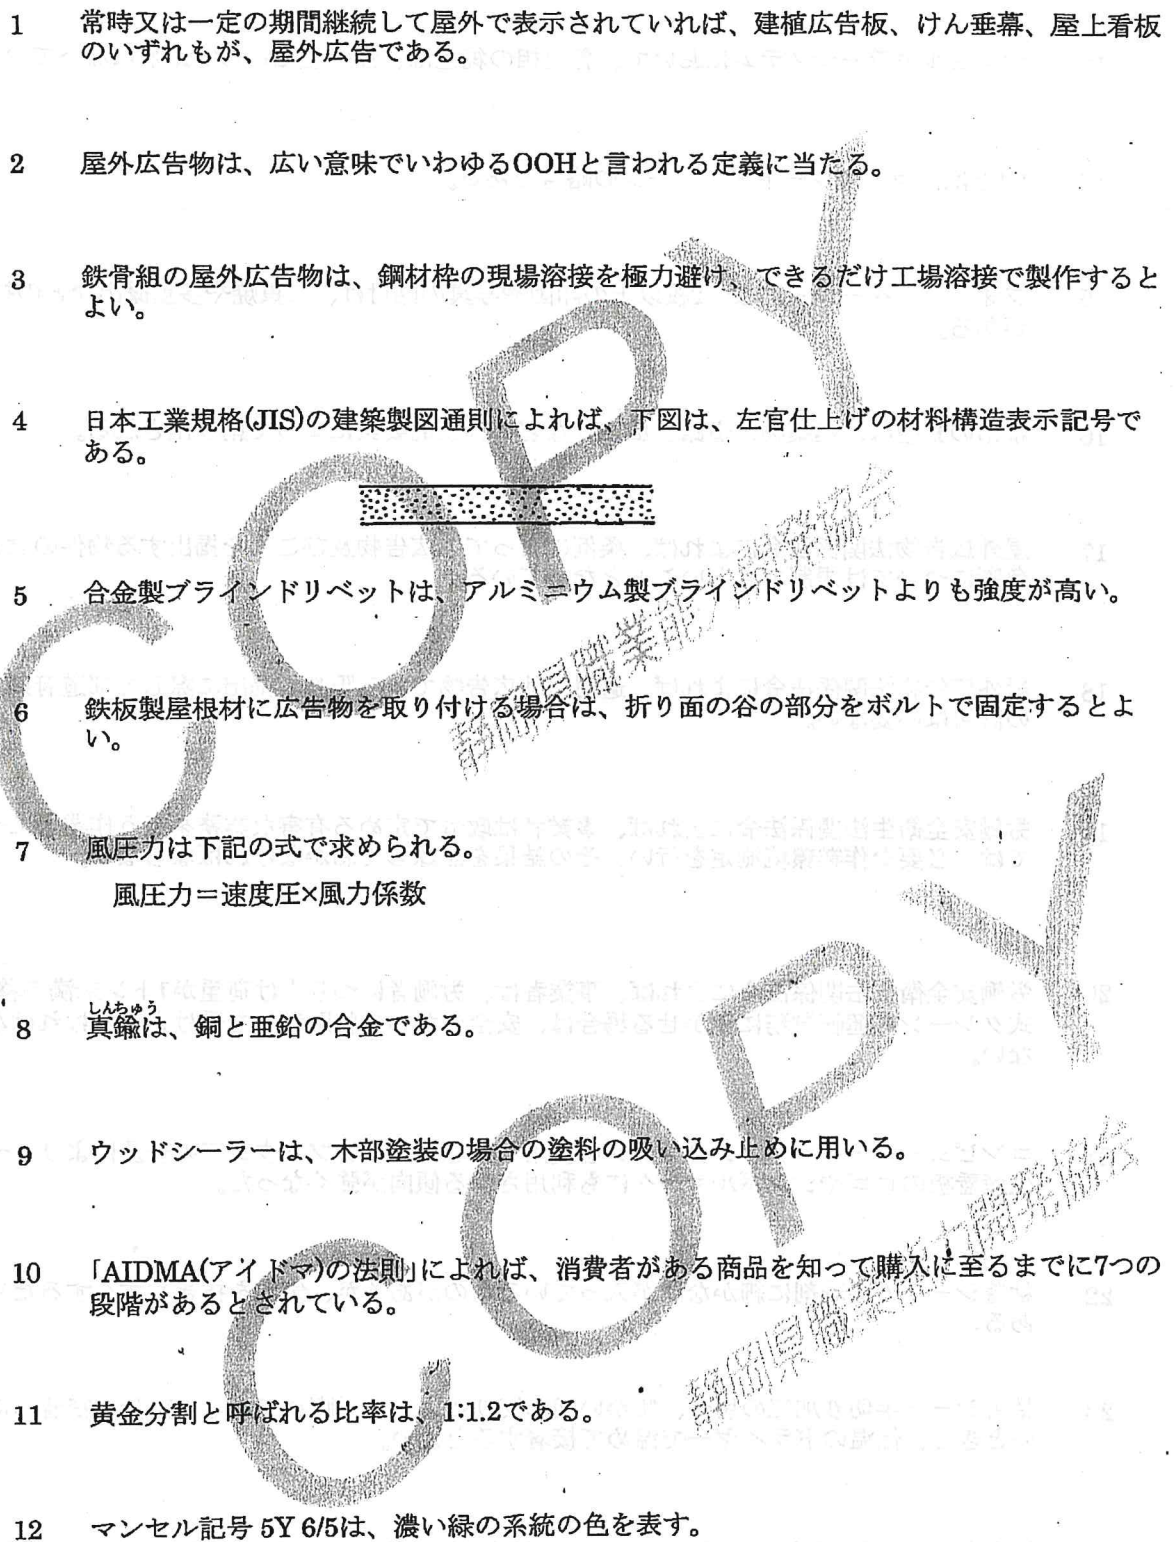 1 常時又は一定の期間継続して屋外で表示されていれば、建植広告板、けん垂幕、屋上看板
のいずれもが、屋外広告である。
2 屋外広告物は、広い意味でいわゆるOOHと言われる定義に当たる。
3 鉄骨組の屋外広告物は、鋼材枠の現場溶接を極力避け、できるだけ工場溶接で製作すると
よい。
4 日本工業規格(JIS)の建築製図通則によれば、下図は、左官仕上げの材料構造表示記号で
ある。
5 合金製ブラインドリベットは、アルミニウム製ブラインドリベットよりも強度が高い。
6 鉄板製屋根材に広告物を取り付ける場合は、折り面の谷の部分をボルトで固定するとよ
い。
7 風圧力は下記の式で求められる。
風圧力＝速度圧×風力係数
しんちゅう
8 真鍮は、銅と亜鉛の合金である。
9 ウッドシーラーは、木部塗装の場合の塗料の吸い込み止めに用いる。
10 「AIDMA(アイドマ)の法則」によれば、消費者がある商品を知って購入に至るまでに7つの
段階があるとされている。
11 黄金分割と呼ばれる比率は、1:1.2である。
12 マンセル記号 5Y 6/5は、濃い緑の系統の色を表す。
COPY
静岡県職業能力開発協会
COPY
静岡県職業能力開発協会